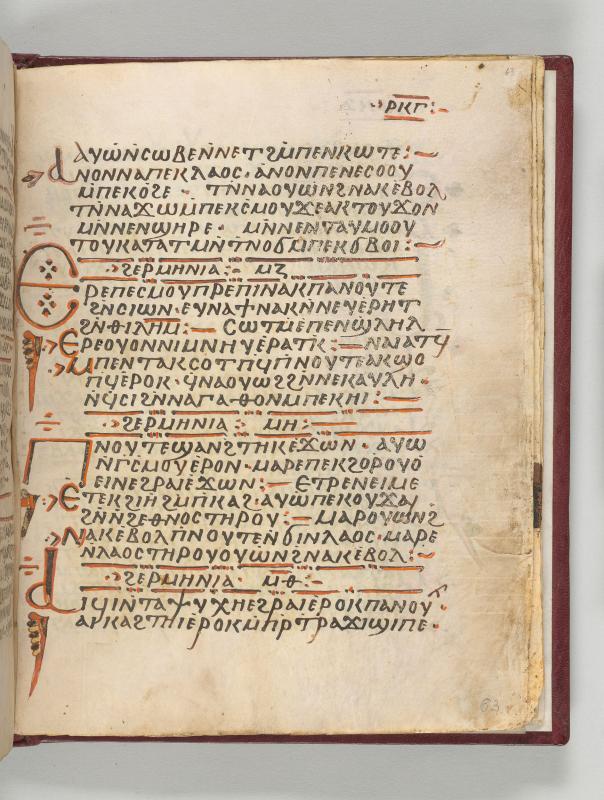 63
ⲣⲕⲅ:–
ⲁⲩⲱⲛ̇ⲥⲱⲃⲉⲛ̇ⲛⲉⲧϩⲙ̇ⲡⲉⲛⲕⲱⲧⲉ:–
ⲁⲛⲟⲛⲛⲁⲡⲉⲕⲗⲁⲟⲥ· ⲁⲛⲟⲛⲡⲉⲛⲉⲥⲟⲟⲩ
ⲙ̇ⲡⲉⲕⲟϩⲉ· ⲧⲛ̇ⲛⲁⲟⲩⲱⲛϩⲛⲁⲕⲉⲃⲟⲗ
ⲧⲛ̇ⲛⲁϫⲱⲙ̇ⲡⲉⲕⲥⲙⲟⲩϫⲉⲁⲕⲧⲟⲩϫⲟⲛ
ⲙⲛ̇ⲛⲉⲛϣⲏⲣⲉ· ⲙⲛ̇ⲛⲉⲛⲧⲁⲩⲙⲟⲟⲩ
ⲧⲟⲩⲕⲁⲧⲁⲧⲙⲛ̇ⲧⲛⲟϭⲙⲡⲉⲕϭⲃⲟⲓ:–
ϩⲉⲣⲙⲏⲛⲓⲁ:– ⲙⲍ
ⲉⲣⲉⲡⲉⲥⲙⲟⲩⲡⲣⲉⲡⲓⲛⲁⲕⲡⲁⲛⲟⲩⲧⲉ
ϩⲛ̇ⲥⲓⲱⲛ· ⲉⲩⲛⲁϯⲛⲁⲕⲛ̇ⲛⲉⲩⲉⲣⲏⲧ
ϩⲛ̇ⲑⲓⲗⲏⲙ:– ⲥⲱⲧⲙ̇ⲉⲡⲉⲛϣⲗⲏⲗ
ⲉⲣⲉⲟⲩⲟⲛⲛⲓⲙⲛⲏⲩⲉⲣⲁⲧⲕ̄:– ⲛⲁⲓⲁⲧϥ̄
ⲙ̇ⲡⲉⲛⲧⲁⲕⲥⲟⲧⲡϥ̇ⲡⲛⲟⲩⲧⲉⲁⲕϣⲟ
ⲡϥ̇ⲉⲣⲟⲕ· ϥⲛⲁⲟⲩⲱϩϩⲛ̇ⲛⲉⲕⲁⲩⲗⲏ·
ⲛϥ̇ⲥⲓϩⲛ̇ⲛⲁⲅⲁⲑⲟⲛⲙⲡⲉⲕⲏⲓ:–
ϩⲉⲣⲙⲏⲛⲓⲁ:– ⲙⲏ:–
ⲡⲛⲟⲩⲧⲉϣⲁⲛϩⲧⲏⲕⲉϫⲱⲛ· ⲁⲩⲱ
ⲛⲅ̇ⲥⲙⲟⲩⲉⲣⲟⲛ· ⲙⲁⲣⲉⲡⲉⲕϩⲟⲣⲟⲩⲟ
ⲉⲓⲛⲉϩⲣⲁⲓⲉϫⲱⲛ:– ⲉⲧⲣⲉⲛⲉⲓⲙⲉ
ⲉⲧⲉⲕϩⲓⲏϩⲙ̇ⲡⲕⲁϩ· ⲁⲩⲱⲡⲉⲕⲟⲩϫⲁⲓ
ϩⲛ̇ⲛ̇ϩⲉⲑⲛⲟⲥⲧⲏⲣⲟⲩ:– ⲙⲁⲣⲟⲩⲱⲛϩ
ⲛⲁⲕⲉⲃⲟⲗⲡⲛⲟⲩⲧⲉⲛϭⲓⲛⲗⲁⲟⲥ· ⲙⲁⲣⲉ
ⲛ̇ⲗⲁⲟⲥⲧⲏⲣⲟⲩⲟⲩⲱⲛϩⲛⲁⲕⲉⲃⲟⲗ:–
ϩⲉⲣⲙⲏⲛⲓⲁ· ⲙⲑ:–
ⲁⲓϥⲓⲛ̇ⲧⲁⲯⲩⲭⲏⲉϩⲣⲁⲓⲉⲣⲟⲕⲡⲁⲛⲟⲩⲧ
ⲁⲓⲕⲁϩⲧⲏⲓⲉⲣⲟⲕⲙ̇ⲡⲣ̇ⲧⲣⲁϫⲓϣⲓⲡⲉ·
63